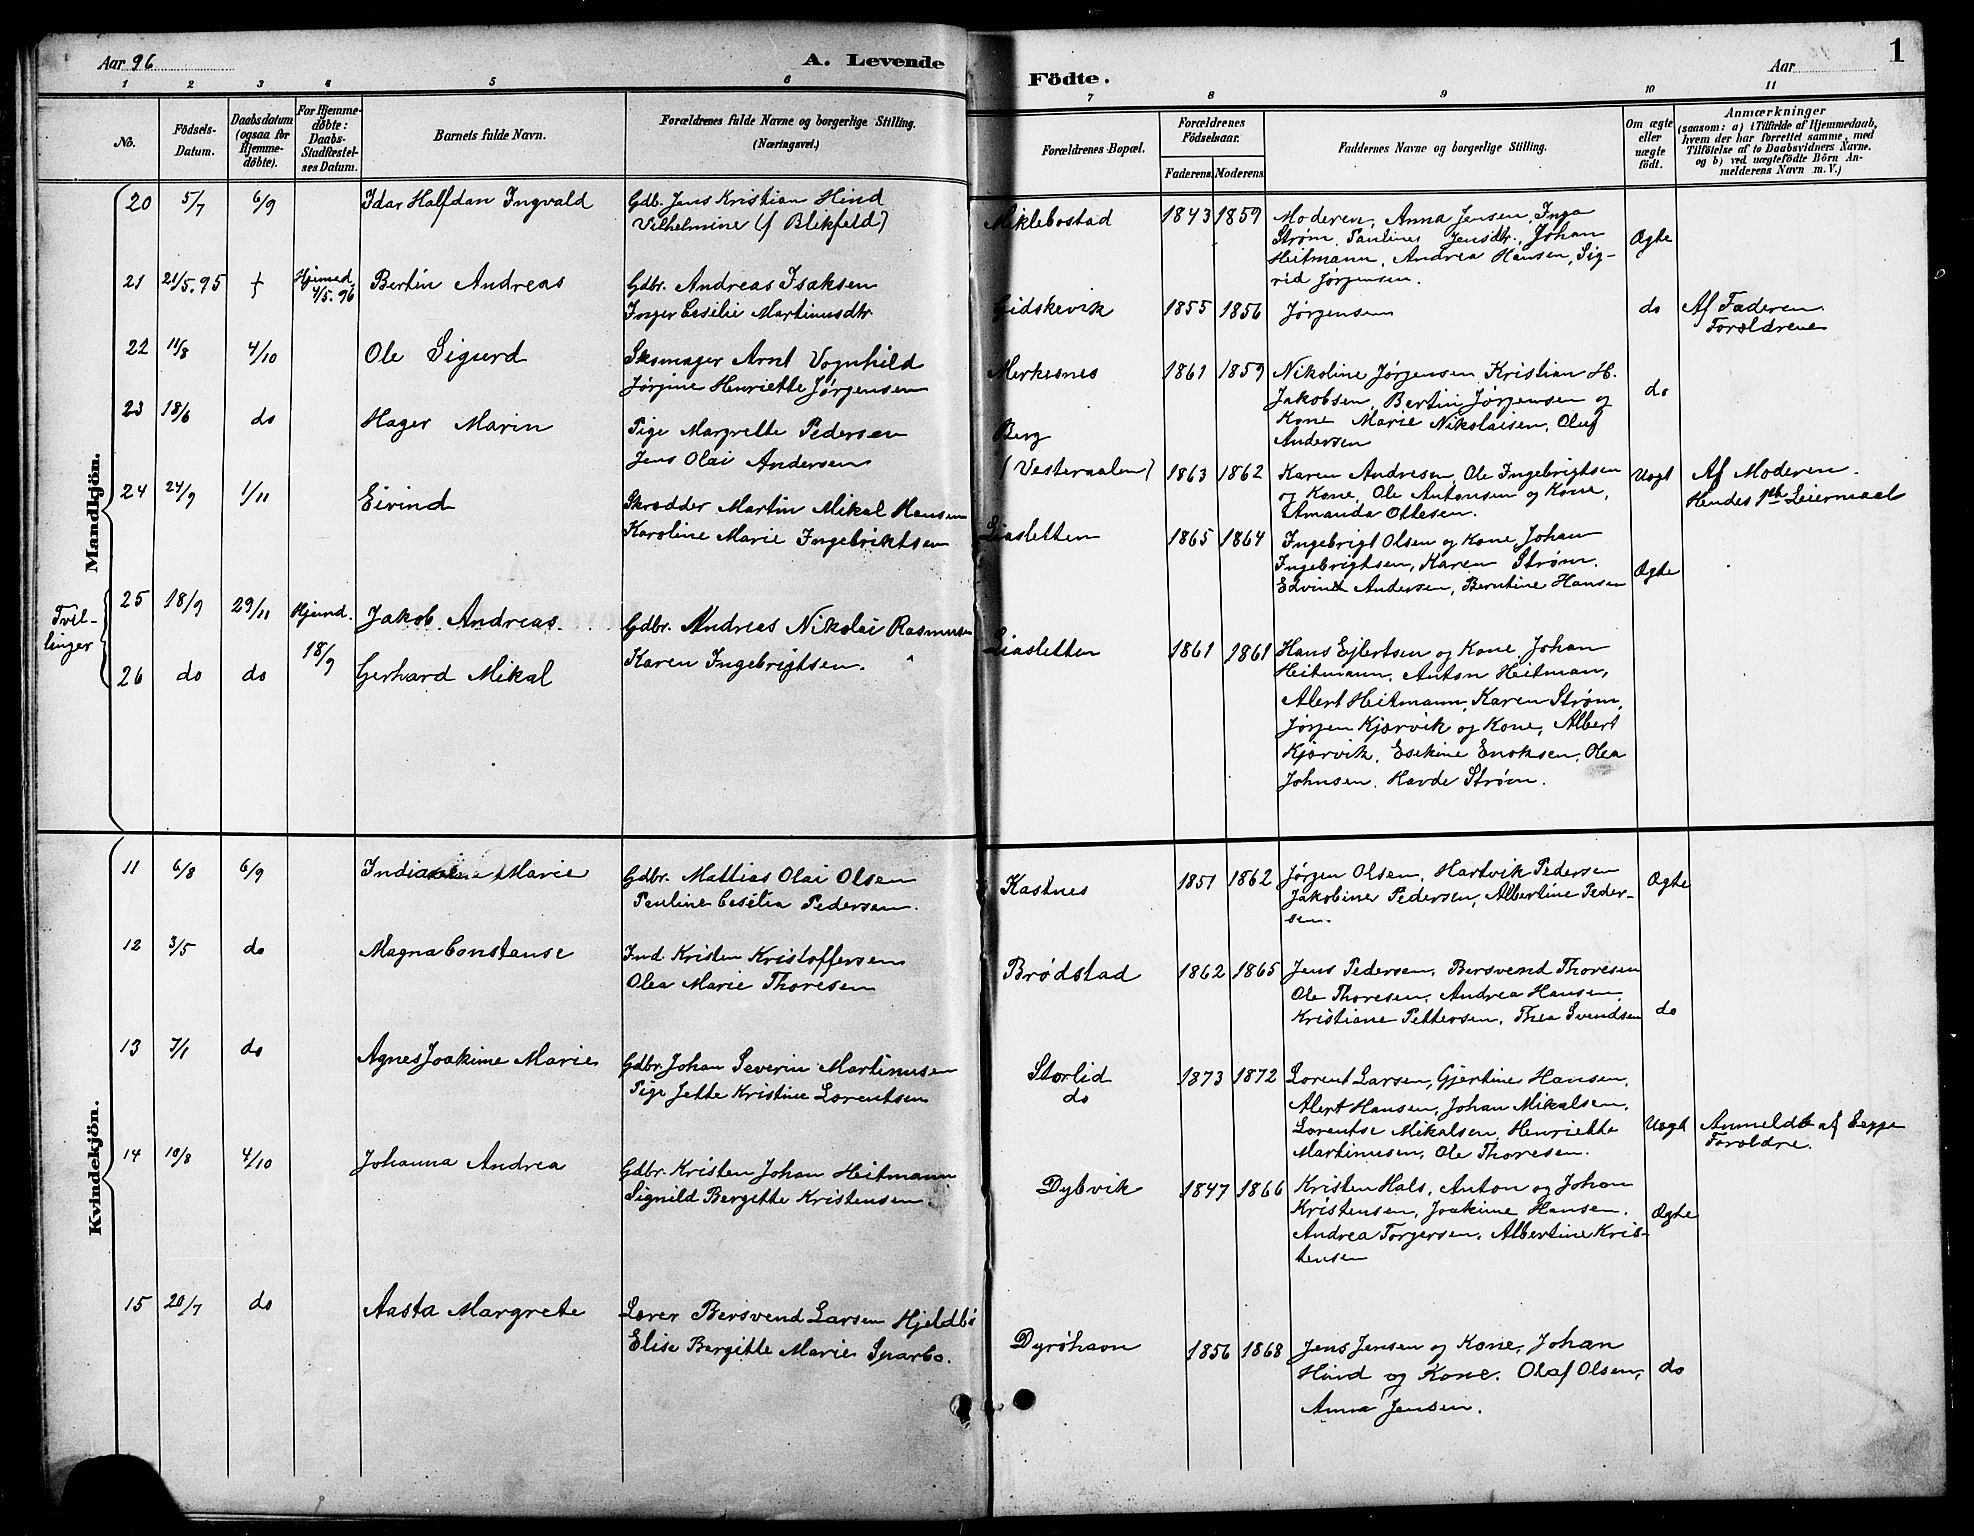 Aar 96
A. Levende
1 2 3 4 5 6
No.
Födsels-Datum.
Daabsdatum (ogsaa for Hjemme-döbte).
For Hjemme-döbte: Daabs-Stadfæstel-ses Datum.
Barnets fulde Navn.
Forældrenes fulde Navne og borgerlige Stilling. (Næringsvei.)
Mandkjön.
20 5/7 6/9 Idar Halfdan Ingvald Gdb. Jens Kristian Hind
Vilhelmine (f Blikfeld)
21 21/5.95 † Hjemmed. 4/5.96 Bertin Andreas Gdbr. Andreas Isaksen
Inger Cesilie Martinusdtr
22 11/8 4/10 Ole Sigurd Skomager Arnt Vognhild
Jørgine Henriette Jørgensen
23 18/6 do Hager Marin Pige Margrette Pedersen
Jens Olai Andersen
24 24/9 1/11 Eivind Skrædder Martin Mikal Hansen
Karoline Marie Ingebriktsen
Tvil-
linger
25 18/9 29/11 Hjemd. Jakob Andreas Gdbr. Andreas Nikolai Rasmussen
26 do do 18/9 Gerhard Mikal Karen Ingebrigtsen.
Kvindekjön.
11 6/8 6/9 Marie Gdbr. Mattias Olai Olsen
Pauline Cesilia Pedersen.
12 3/5 do Magna Constanse Ind. Kristen Kristoffersen
Olea Marie Thoresen
13 7/1 do Agnes Joakime Marie Gdbr. Johan Severin Martinusen
Pige Jette Kristine Lorentsen
14 10/8 4/10 Johanna Andrea Gdbr. Kristen Johan Heitmann
Signild Bergitte Kristensen
15 20/7 do Aasta Margrete Lærer Bersvend Larsen
Elise Bergitte Marie Snarbo.
Födte.
Aar
1
7 8 9 10 11
Forældrenes Bopæl.
Forældrenes Födselsaar.
Faderens. Moderens.
Faddernes Navne og borgerlige Stilling.
Om ægte eller uægte födt.
Anmærkninger
(saasom: a) i Tilfælde af Hjemmedaab,
hvem der har forrettet samme, med
Tilföielse af to Daabsvidners Navne,
og b) ved uægtefödte Börn An-
melderens Navn m. V.)
Miklebostad 1843 1859 Moderen, Anna Jensen, Inga
Strøm, Pauline Jensdtr., Johan
Heitmann, Andrea Hansen, Sig-
rid Jørgensen.
Ægte
Gidskevik 1855 1856 Jørgensen do Af Faderen
Forældrene
Merkesnes 1861 1859 Nikoline Jørgensen, Kristian H.
Jakobsen, Bertin Jørgensen og
Kone Marie Nikolaisen, Oluf
Andersen
do
Berg
(Vesteraalen) 1863 1862 Karen Andresen, Ole Ingebrigtsen
og Kone, Ole Antonsen og Kone,
Amanda Ottesen.
Uægt Af Moderen.
Hendes 1ste Leiermaal
Liasletten 1865 1864 Ingebrigt Olsen og Kone, Johan
Ingebrigtsen, Karen Strøm.
Edvind Andersen, Berntine Hansen
Ægte
Liasletten 1861 1861 Hans Ejlertsen og Kone, Johan
Heitmann, Anton Heitman,
Alert Heitmann, Karen Strøm,
Jørgen Kjærvik og Kone, Albert
Kjærvik, Esekine Enoksen, Olea
Johnsen, Havde Strøm.
Kastnes 1851 1862 Jørgen Olsen, Hartvik Pedersen
Jakobine Pedersen, Albertine Peder-
sen.
Ægte
Brødstad 1862 1865 Jens Pedersen, Bersvend Thoresen
Ole Thoresen, Andrea Hansen
Kristiane Pettersen, Thea Svendsen
do
Storlid
do
1873 1872 Lorent Larsen, Gjertine Hansen,
Alert Hansen, Johan Mikalsen,
Lorentse Mikalsen, Henriette
Martinusen, Ole Thoresen.
Uægt Anmeldt af begge
Forældre.
Dybvik 1847 1866 Kristen Hals, Anton og Johan
Kristensen, Joakime Hansen.
Andrea Torgersen, Albertine Kris-
tensen
Ægte
Dyröhavn 1856 1868 Jens Jensen og Kone, Johan
Hind og Kone. Olaf Olsen,
Anna Jensen.
do